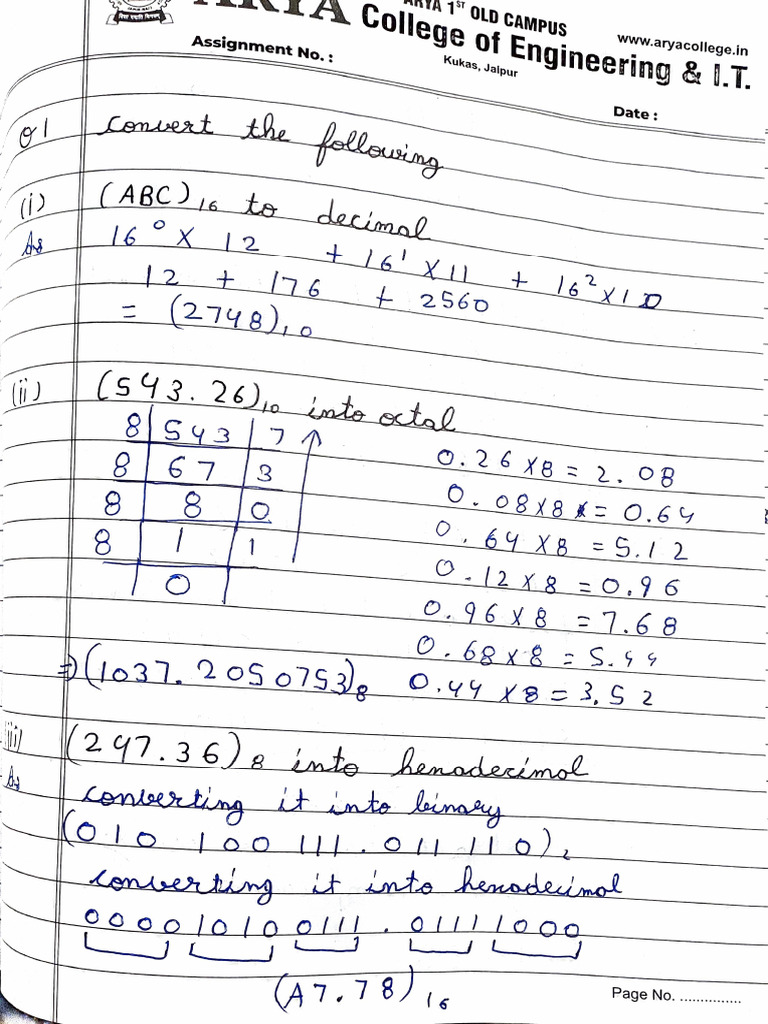 ARYA
ARYA 1ST OLD CAMPUS
College of Engineering & I.T.
www.aryacollege.in
Kukas, Jaipur
Assignment No. :
Date :
Q1 Convert the following
(i) (ABC)₁₆ to decimal
As 16⁰ × 12 + 16¹ × 11 + 16² × 10
12 + 176 + 2560
= (2748)₁₀
(ii) (543.26)₁₀ into octal
8 543 7
8 67 3
8 8 0
8 1 1
0
0.26×8 = 2.08
0.08×8 = 0.64
0.64×8 = 5.12
0.12×8 = 0.96
0.96×8 = 7.68
0.68×8 = 5.44
0.44×8 = 3.52
⇒ (1037.2050753)₈
iii) (247.36)₈ into henadecimal
As converting it into binary
(010 100 111.011 110)₂
converting it into henadecimal
0000 1010 0111.0111 1000
(A7.78)₁₆
Page No. ...............